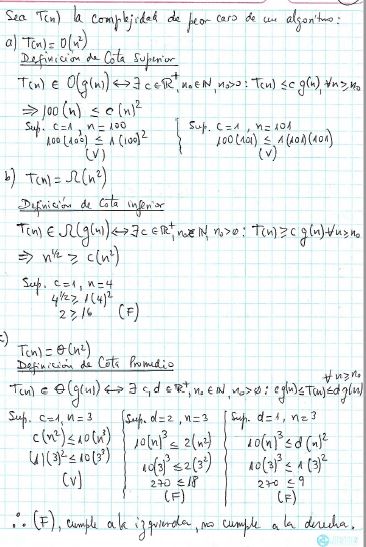 Sea T(n) la complejidad de peor caso de un algoritmo:
a) T(n) = O(n²)
Definición de Cota Superior
T(n) ∈ O(g(n)) ↔ ∃ c ∈ ℝ⁺, n₀ ∈ ℕ, n₀>0 : T(n) ≤ c g(n), ∀ n ≥ n₀
⇒ 100(n) ≤ c(n)²
Sup. c=1, n=100
100(100) ≤ 1(100)²
(V)
Sup. c=1, n=101
100(101) ≤ 1(101)(101)
(V)
b) T(n) = Ω(n²)
Definición de Cota inferior
T(n) ∈ Ω(g(n)) ↔ ∃ c ∈ ℝ⁺, n₀ ∈ ℕ, n₀>0 : T(n) ≥ c g(n) ∀ n ≥ n₀
⇒ n^{1/2} ≥ c(n²)
Sup. c=1, n=4
4^{1/2} ≥ 1(4)²
2 ≥ 16 (F)
c)
T(n) = Θ(n²)
Definición de Cota Promedio
∀ n ≥ n₀
T(n) ∈ Θ(g(n)) ↔ ∃ c, d ∈ ℝ⁺, n₀ ∈ ℕ, n₀>0 : c g(n) ≤ T(n) ≤ d g(n)
Sup. c=1, n=3
c(n²) ≤ 10(n³)
(1)(3)² ≤ 10(3³)
(V)
Sup. d=2, n=3
10(n)³ ≤ 2(n²)
10(3)³ ≤ 2(3²)
270 ≤ 18
(F)
Sup. d=1, n=3
10(n)³ ≤ d(n)²
10(3)³ ≤ 1(3)²
270 ≤ 9
(F)
∴ (F), cumple a la izquierda, no cumple a la derecha.